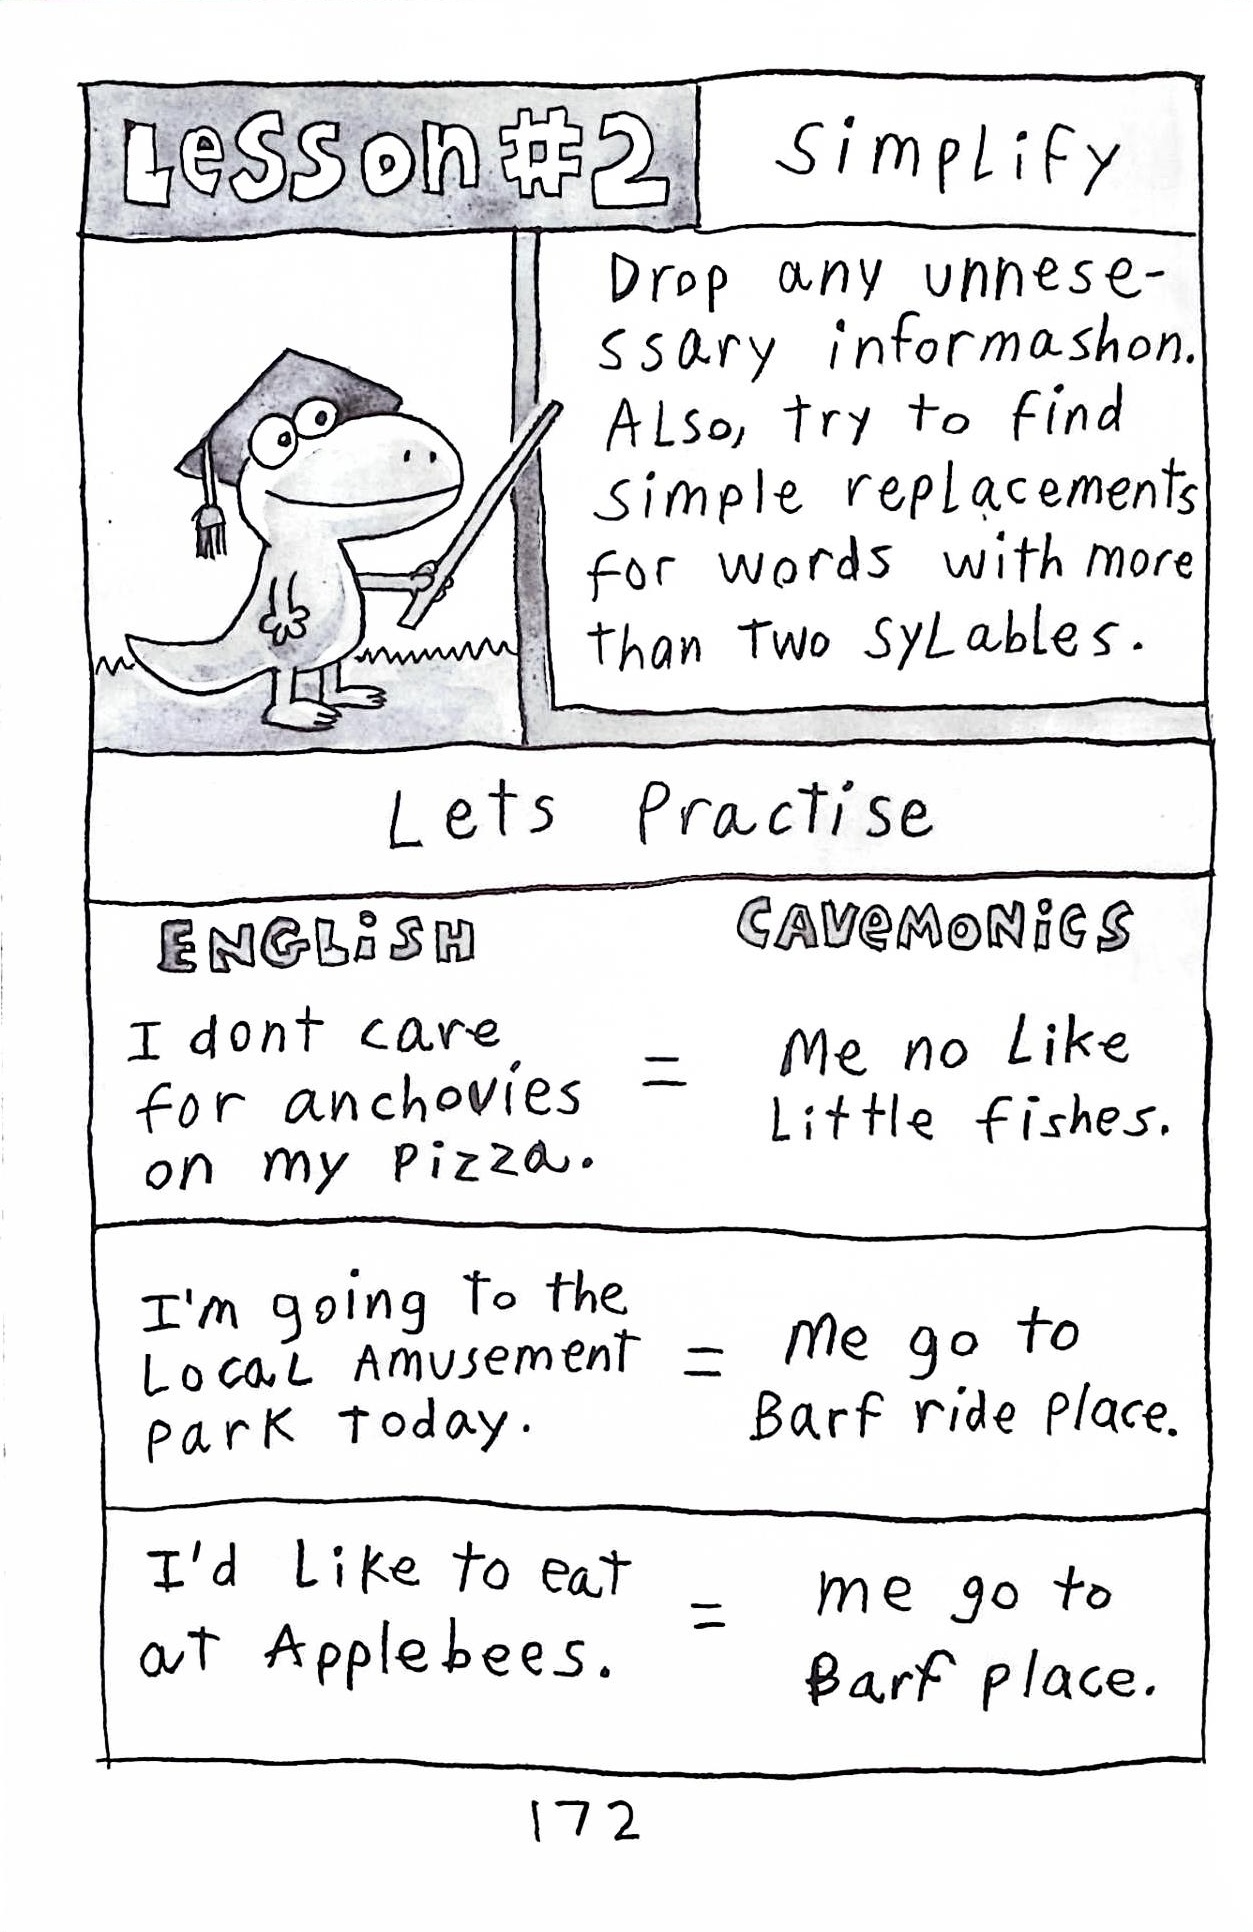 Lesson #2
Simplify
Drop any unnese-
ssary informashon.
Also, try to find
simple replacements
for words with more
than two sylables.
Lets Practise
ENGLISH
CAVEMONICS
I dont care
for anchovies
on my pizza.
=
Me no like
little fishes.
I'm going to the
local amusement
park today.
=
me go to
Barf ride place.
I'd like to eat
at Applebees.
=
me go to
Barf place.
172